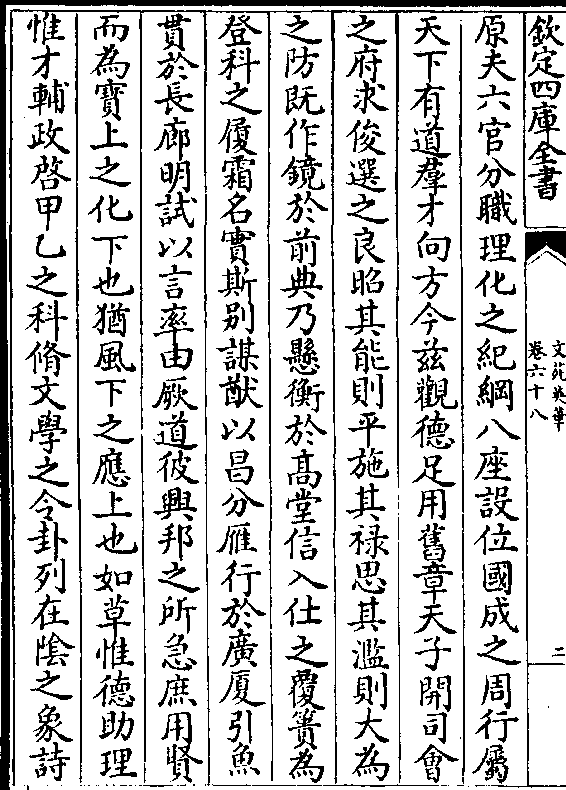 欽定四庫全書
文苑英華
卷六十八
二
原夫六官分職理化之紀綱八座設位國成之周行屬
天下有道羣才向方今兹觀德足用舊章天子開司會
之府求俊選之良昭其能則平施其禄思其濫則大為
之防既作鏡於前典乃懸衡於髙堂信入仕之覆簣為
登科之履霜名實斯别謀猷以昌分雁行於廣厦引魚
貫於長廊明試以言率由厥道彼興邦之所急庶用賢
而為寶上之化下也猶風下之應上也如草惟德助理
惟才輔政啓甲乙之科脩文學之令卦列在隂之象詩